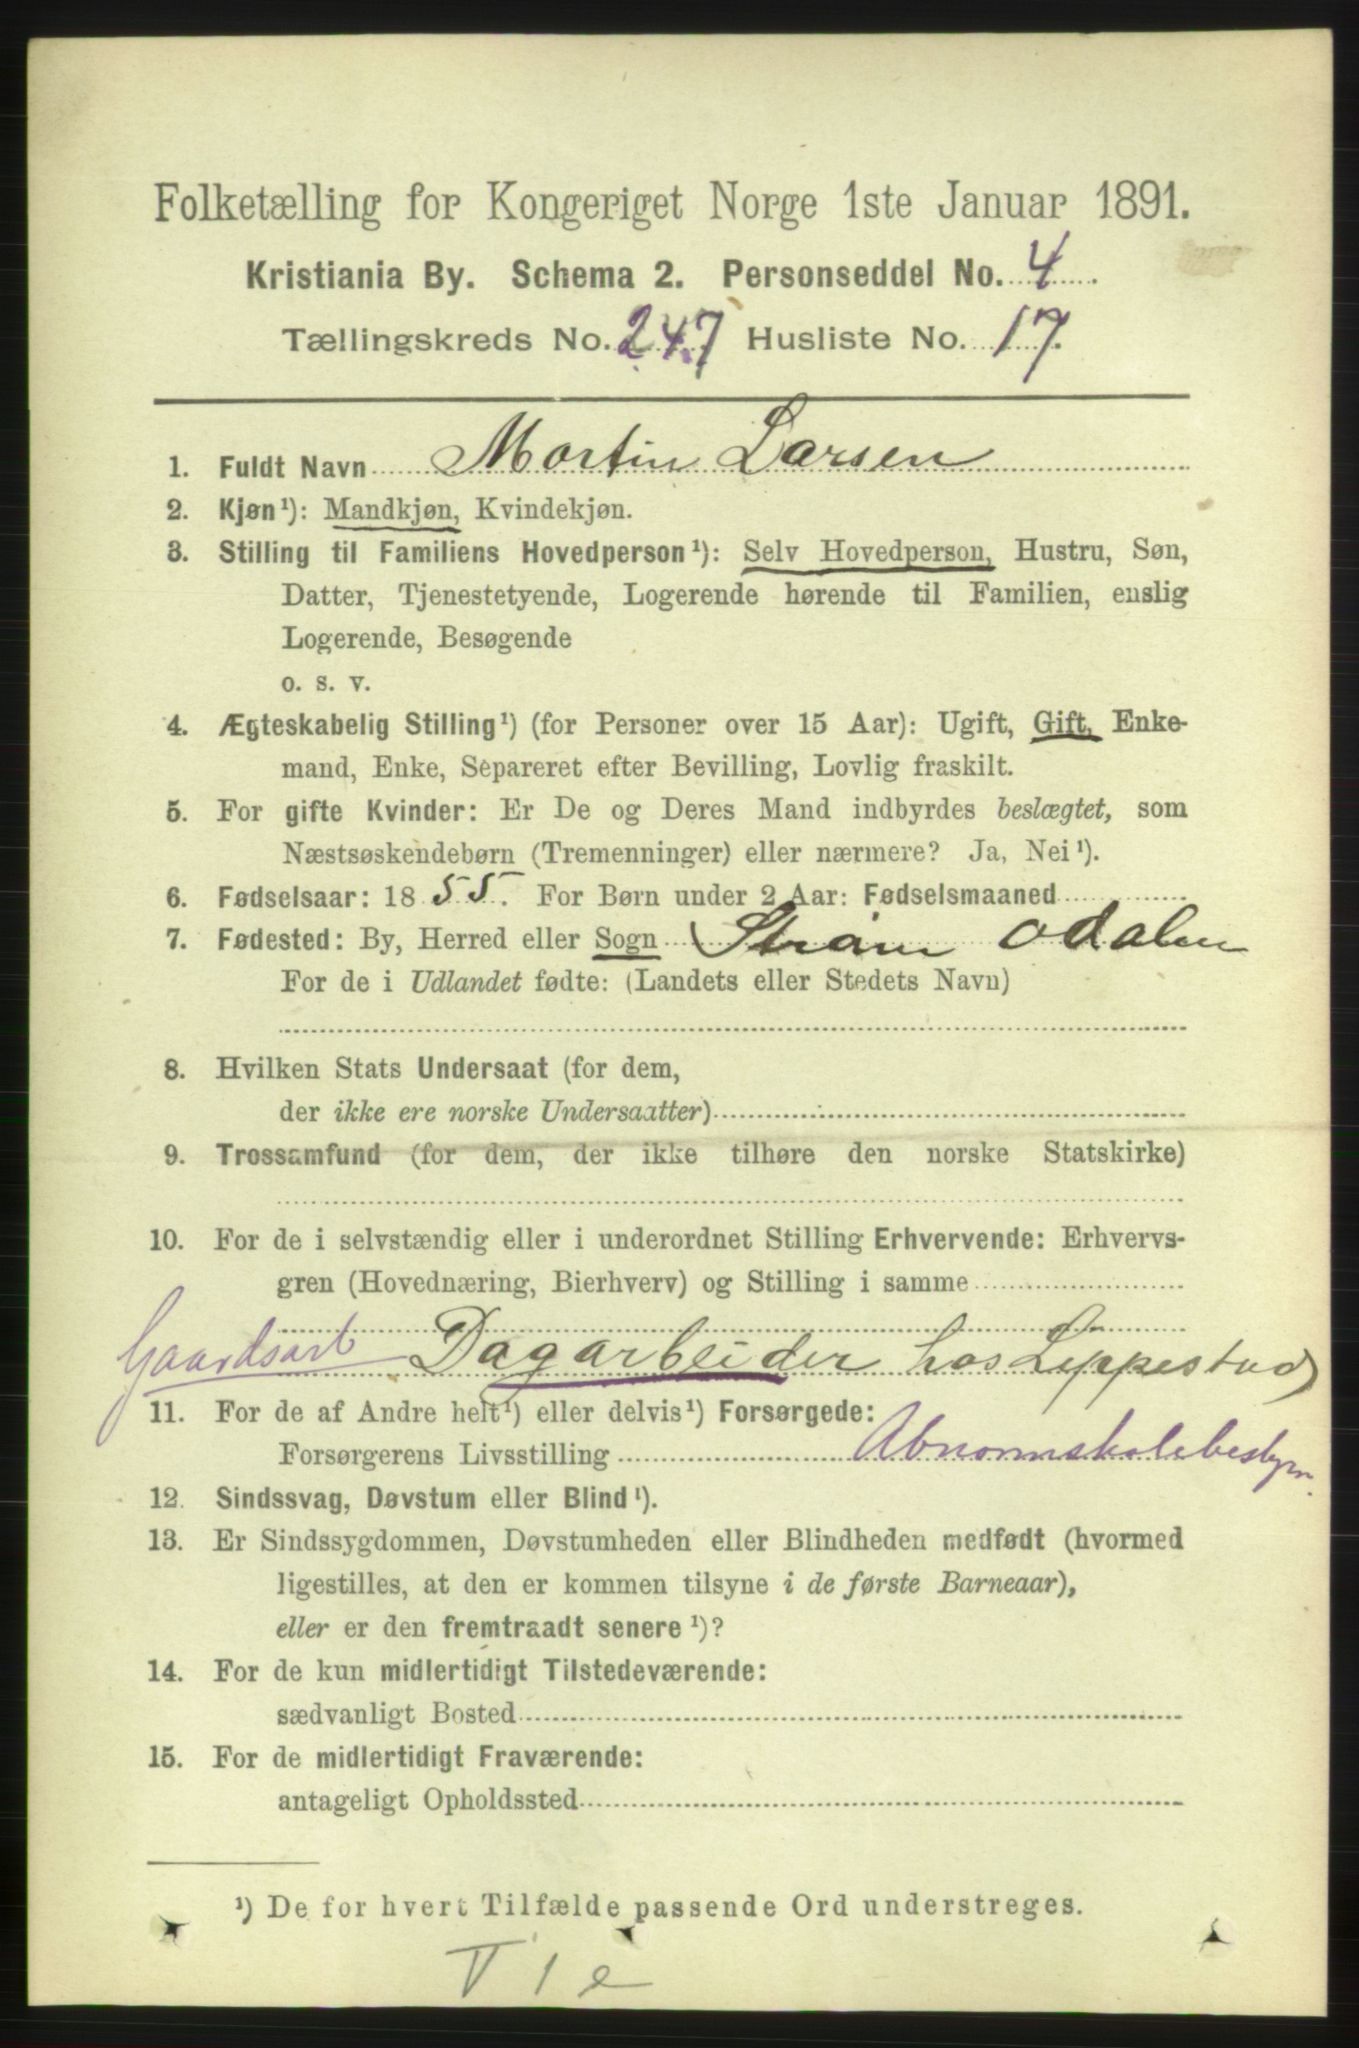 Folketælling for Kongeriget Norge 1ste Januar 1891.
Kristiania By. Schema 2. Personseddel No. 4
Tællingskreds No. 247 Husliste No. 17.
1. Fuldt Navn Martin Larsen
2. Kjøn¹): Mandkjøn, Kvindekjøn.
3. Stilling til Familiens Hovedperson¹): Selv Hovedperson, Hustru, Søn,
Datter, Tjenestetyende, Logerende hørende til Familien, enslig
Logerende, Besøgende
o. s. v.
4. Ægteskabelig Stilling¹) (for Personer over 15 Aar): Ugift, Gift, Enke-
mand, Enke, Separeret efter Bevilling, Lovlig fraskilt.
5. For gifte Kvinder: Er De og Deres Mand indbyrdes beslægtet, som
Næstsøskendebørn (Tremenninger) eller nærmere? Ja, Nei¹).
6. Fødselsaar: 1855. For Børn under 2 Aar: Fødselsmaaned
7. Fødested: By, Herred eller Sogn Strøm Odalen
For de i Udlandet fødte: (Landets eller Stedets Navn)
8. Hvilken Stats Undersaat (for dem,
der ikke ere norske Undersaatter)
9. Trossamfund (for dem, der ikke tilhøre den norske Statskirke)
10. For de i selvstændig eller i underordnet Stilling Erhvervende: Erhvervs-
gren (Hovednæring, Bierhverv) og Stilling i samme
Gaardsarb Dagarbeider hos Lippestad
11. For de af Andre helt¹) eller delvis¹) Forsørgede:
Forsørgerens Livsstilling Abnormskolebestyrer.
12. Sindssvag, Døvstum eller Blind¹).
13. Er Sindssygdommen, Døvstumheden eller Blindheden medfødt (hvormed
ligestilles, at den er kommen tilsyne i de første Barneaar),
eller er den fremtraadt senere¹)?
14. For de kun midlertidigt Tilstedeværende:
sædvanligt Bosted
15. For de midlertidigt Fraværende:
antageligt Opholdssted
¹) De for hvert Tilfælde passende Ord understreges.
V 1 e